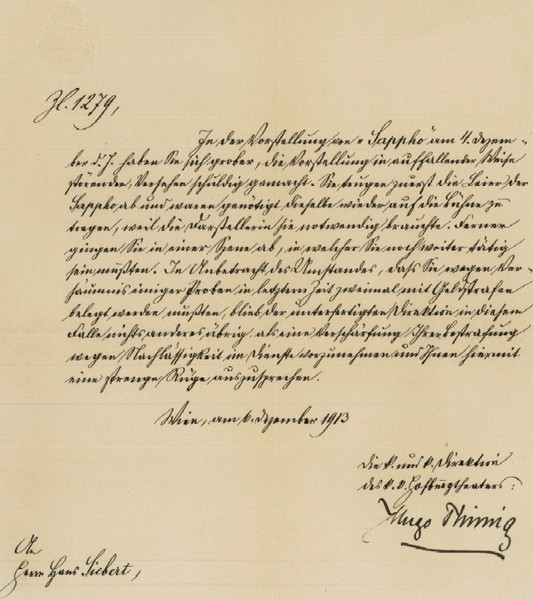 Zl. 1279,
In der Vorstellung von „Sappho" am 4. Dezem-
ber d. J. haben Sie sich grober, die Vorstellung in auffallender Weise
störender, Versehen schuldig gemacht. Sie trugen zuerst die Leier der
Sappho ab und waren genötigt dieselbe wieder auf die Bühne zu
tragen, weil die Darstellerin sie notwendig brauchte. Ferner
gingen Sie in einer Szene ab, in welcher Sie noch weiter tätig
sein mußten. In Anbetracht des Umstandes, daß Sie wegen Ver-
säumnis einiger Proben in letzterer Zeit zweimal mit Geldstrafen
belegt werden mußten, blieb der unterfertigten Direktion in diesem
Falle nichts anderes übrig als eine Verschärfung Ihrer Bestrafung
wegen Nachlässigkeit im Dienste vorzunehmen und Ihnen hiermit
eine strenge Rüge auszusprechen.
Wien, am 6. Dezember 1913
Die k. und k. Direktion
des k. k. Hofburgtheaters:
Hugo Thimig
An
Herrn Hans Siebert,